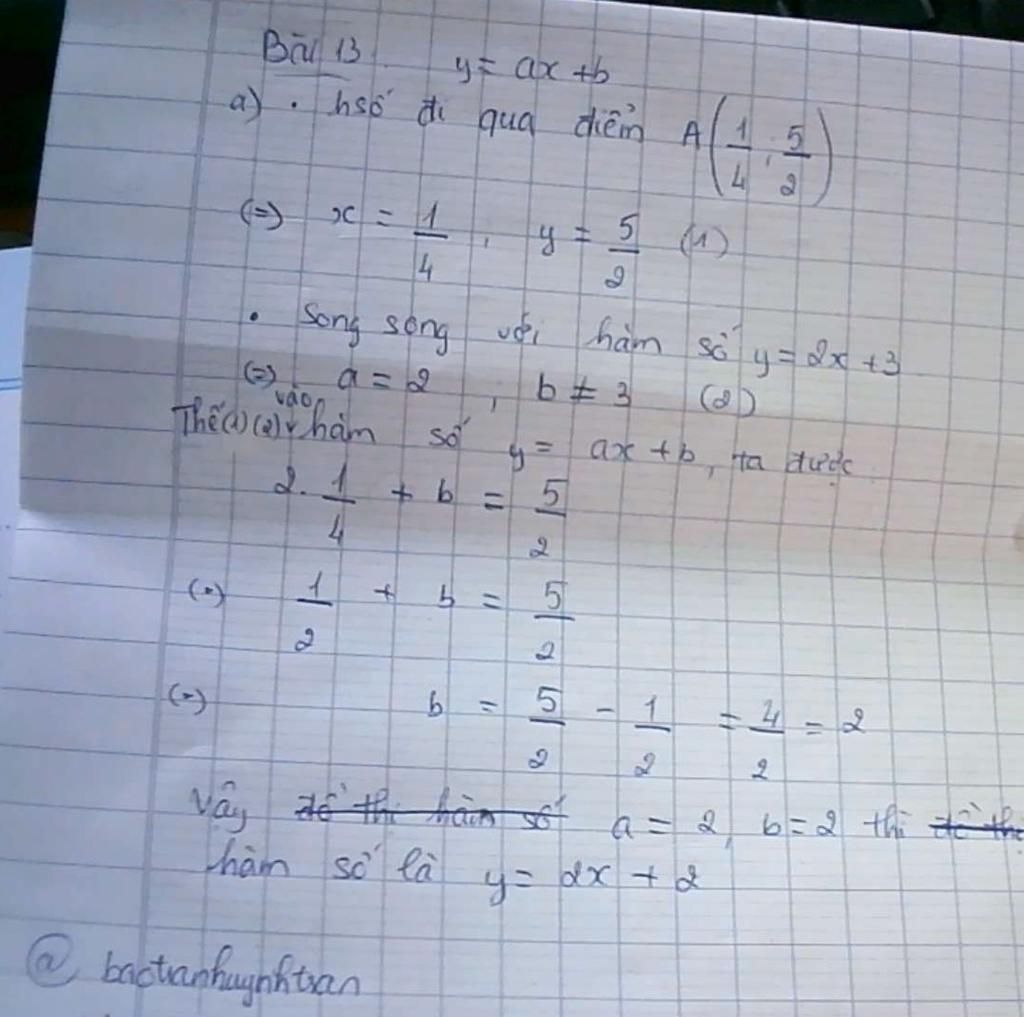 Bài 13 y = ax + b
a) • hsố đi qua điểm A(1/4 ; 5/2)
(=) x = 1/4 , y = 5/2 (1)
• Song song với hàm số y = 2x + 3
(=) a = 2 , b ≠ 3 (2)
Thế (1) (2) vào hàm số y = ax + b, ta được
2. 1/4 + b = 5/2
(=) 1/2 + b = 5/2
(=) b = 5/2 - 1/2 = 4/2 = 2
Vậy đồ thị hàm số a = 2, b = 2 thì đồ thị
hàm số là y = 2x + 2
@ bactranhuynhtran